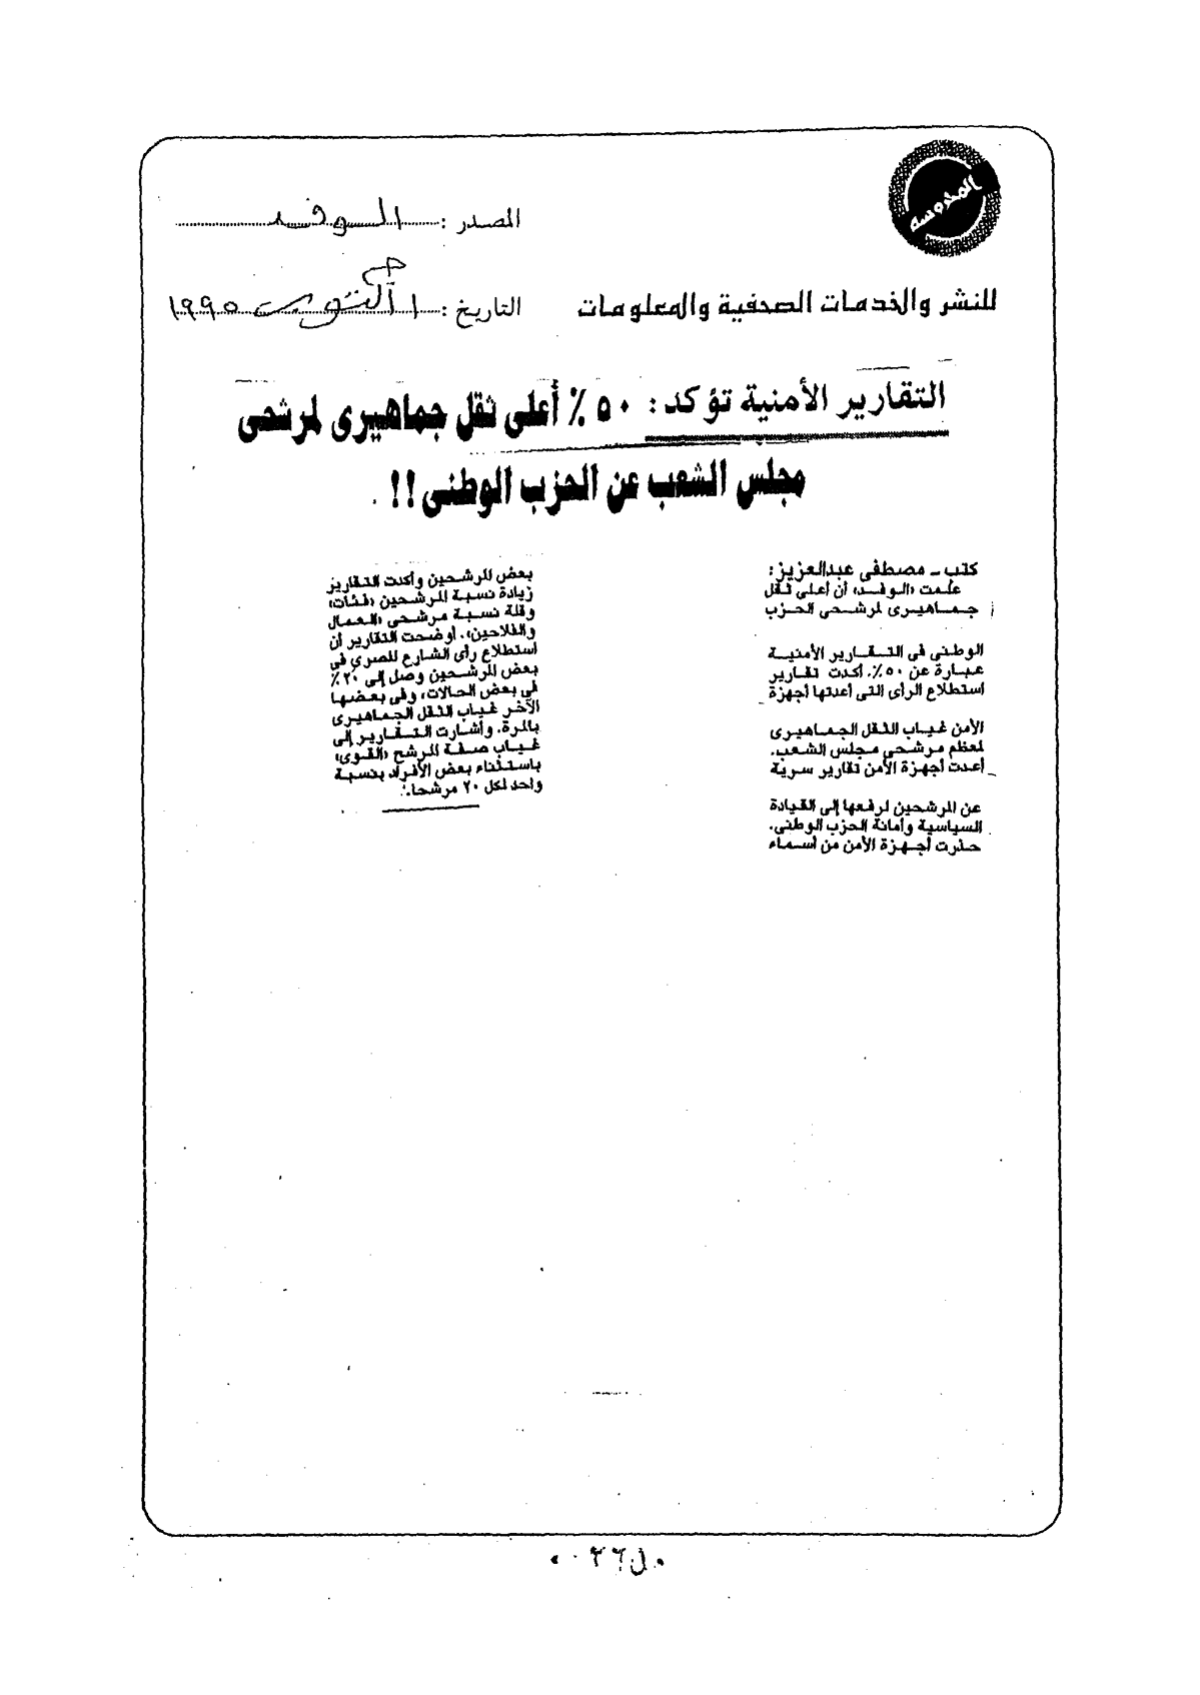 المحروسة
المصدر : الوفد
للنشر والخدمات الصحفية والمعلومات
التاريخ : ١ أكتوبر ١٩٩٥
التقارير الأمنية تؤكد : ٥٠ ٪ أعلى ثقل جماهيرى لمرشحى
مجلس الشعب عن الحزب الوطنى !!
كتب ـ مصطفى عبدالعزيز:
علمت «الوفد» أن أعلى ثقل
جماهيرى لمرشحى الحزب
الوطنى فى التقارير الأمنية
عبارة عن ٥٠٪. أكدت تقارير
استطلاع الرأى التى أعدتها أجهزة
الأمن غياب الثقل الجماهيرى
لمعظم مرشحى مجلس الشعب.
أعدت أجهزة الأمن تقارير سرية
عن المرشحين لرفعها إلى القيادة
السياسية وأمانة الحزب الوطنى.
حذرت أجهزة الأمن من أسماء
بعض المرشحين وأكدت التقارير
زيادة نسبة المرشحين «فئات»
وقلة نسبة مرشحى «العمال
والفلاحين». أوضحت التقارير أن
استطلاع رأى الشارع المصرى فى
بعض المرشحين وصل إلى ٢٠٪
فى بعض الحالات، وفى بعضها
الآخر غياب الثقل الجماهيرى
بالمرة. وأشارت التقارير إلى
غياب صفة المرشح «القوى»
باستثناء بعض الأفراد بنسبة
واحد لكل ٢٠ مرشحا.